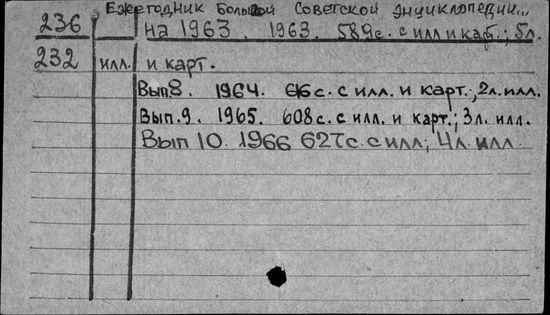 Ежегодник Большой Советской энциклопедии...
236 на 1963. 1963. 589с. с илл и карт.; 5л.
232 илл. и карт.
Вып8. 1964. 616с. с илл. и карт., 2л. илл.
Вып.9. 1965. 608с. с илл. и карт.; 3л. илл.
Вып 10. 1966 627с. с илл; 4л. илл